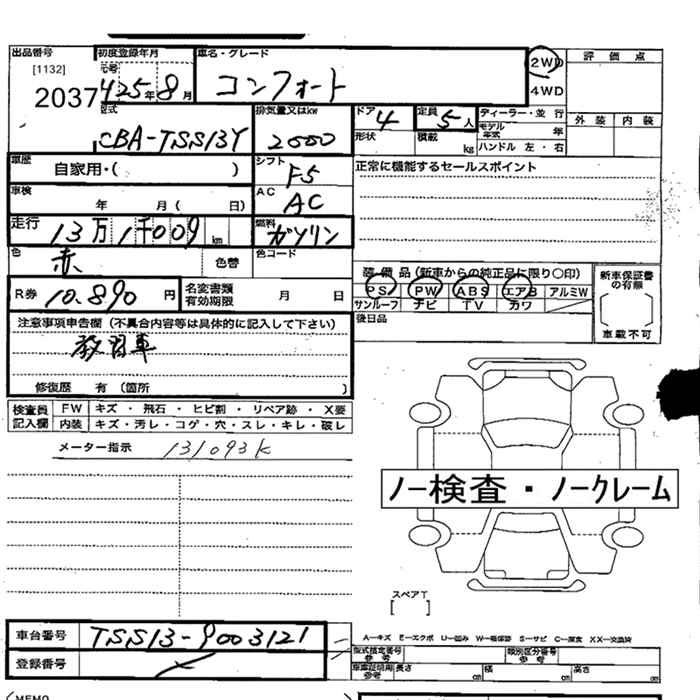 出品番号 初度登録年月 車名・グレード 2WD 評価点
[1132] 25年8月 コンフォート 4WD
2037
型式 排気量又はkw ドア 定員 ディーラー・並行 外装 内装
CBA-TSS13Y 2000 4 5人 モデル年式 年
形状 積載 kg ハンドル 左・右
車歴 シフト 正常に機能するセールスポイント
自家用・( ) F5
車検 AC
年 月( 日) AC
走行 燃料
13万1千009km ガソリン
色 赤 色替 色コード
装備品(新車からの純正品に限り○印) 新車保証書の有無
R券 10.890円 名変書類有効期限 月 日 PS PW ABS エアB アルミW
サンルーフ ナビ TV カワ
後日品 車載不可
注意事項申告欄(不具合内容等は具体的に記入して下さい)
教習車
修復歴 有(箇所 )
検査員 FW キズ・飛石・ヒビ割・リペア跡・X要
記入欄 内装 キズ・汚レ・コゲ・穴・スレ・キレ・破レ
メーター指示 131093K
ノー検査・ノークレーム
スペアT
[ ]
車台番号 TSS13-9003121
A−キズ E−エクボ U−凹み W−補修跡 S−サビ C−腐食 XX−交換済
登録番号
型式指定番号 参考 類別区分番号 参考
車庫証明用 参考 長さ cm 幅 cm 高さ cm
MEMO